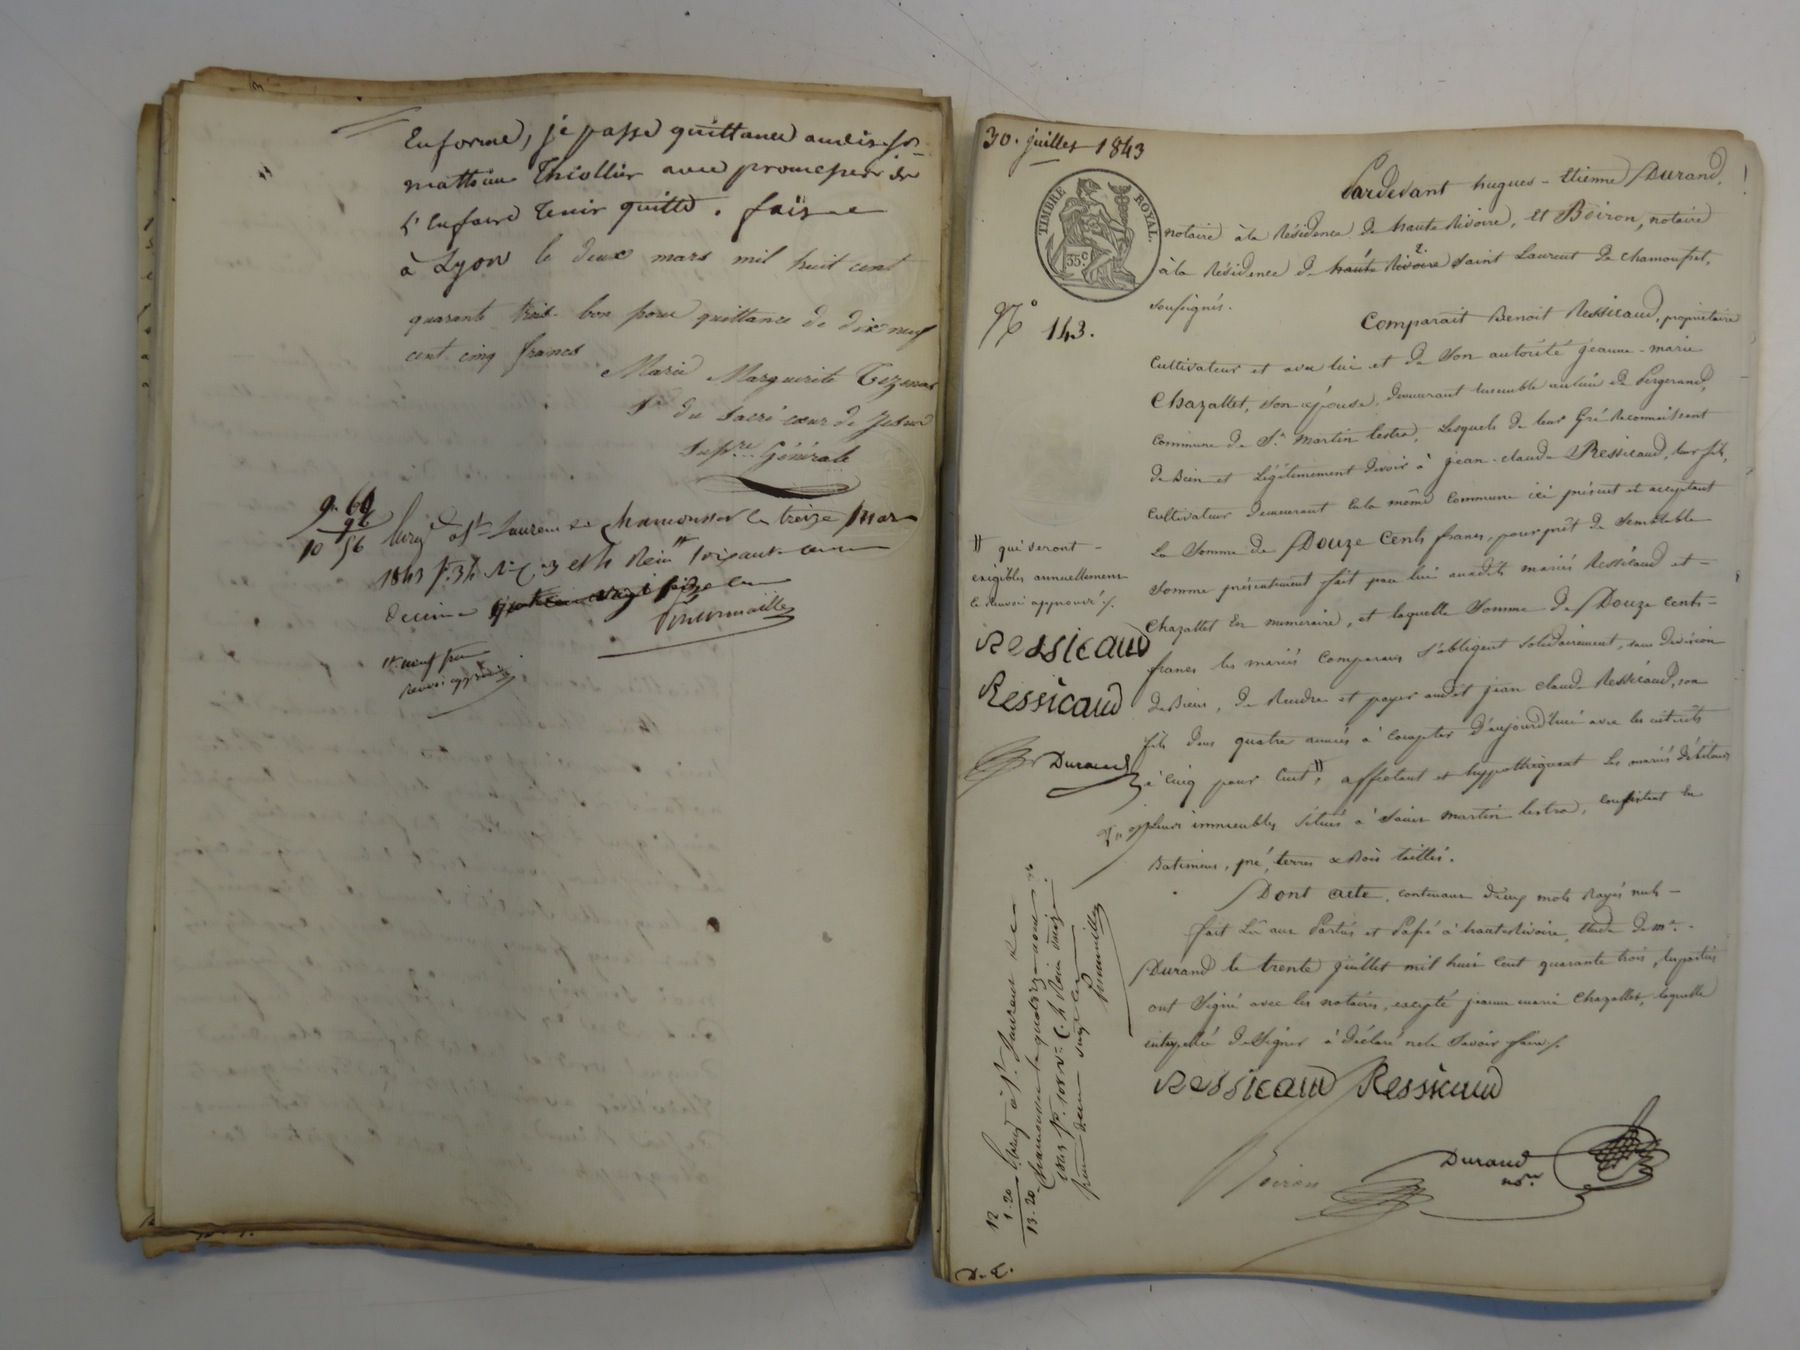 en forme, je passe quittance audit sr
mathieu Thiollier avec promesse de
l'en faire tenir quitte. fais
à Lyon le deux mars mil huit cent
quarante trois. bon pour quittance de dix neuf
cent cinq francs
Marie Marguerite
Sr du Sacré cœur de Jesus
Supre Générale
9. 60
96
10 56
Enrg à St Laurent de Chamousset le treize Mars
1843 f. 34
decime
neuf fr
renvoi approuvé
30. juillet 1843
TIMBRE ROYAL.
35c
No 143.
Pardevant hugues-Etienne Durand,
notaire à la Résidence de haute Rivoire, et Boiron, notaire
à la Résidence de haute Rivoire Saint Laurent de Chamousset,
soussignés.
Comparait Benoit Ressicaud, propriétaire
Cultivateur et avec lui et de son autorité jeanne-marie
Chazallet, son épouse, demeurant ensemble au lieu de
commune de St. martin lestra, Lesquels de leur Gré Reconnaissent
de Bien et Légitimement devoir à jean-claude Ressicaud, leur fils,
cultivateur demeurant en la même commune ici présent et acceptant
La Somme de Douze Cents francs, pour prêt de semblable
somme présentement fait par lui auxdits mariés Ressicaud et
Chazallet en numéraire, et laquelle somme de Douze cents
francs les mariés comparans s'obligent solidairement, sans division
de Biens, de Rendre et payer audit jean claude Ressicaud, son
fils dans quatre années à compter d'aujourd'hui avec les intérêts
à cinq pour cent, affectant et hypothéquant les mariés débiteurs
leurs immeubles situés à Saint martin lestra, consistant en
Batimens, pré, terres & Bois taillis.
Dont acte, contenant deux mots rayés nuls
fait Lu aux Parties et Passé à haute Rivoire, étude de me.
Durand le trente juillet mil huit cent quarante trois, les parties
ont signé avec les notaires, excepté jeanne marie Chazallet, laquelle
interpellée de signer a déclaré ne le savoir faire/.
Ressicaud Ressicaud
Boiron
Durand
nore
qui seront
exigibles annuellement
le renvoi approuvé/.
Ressicaud
Ressicaud
Br Durand
12
1. 20
13. 20
Enrg à St Laurent de
Chamousset le quatorze aout